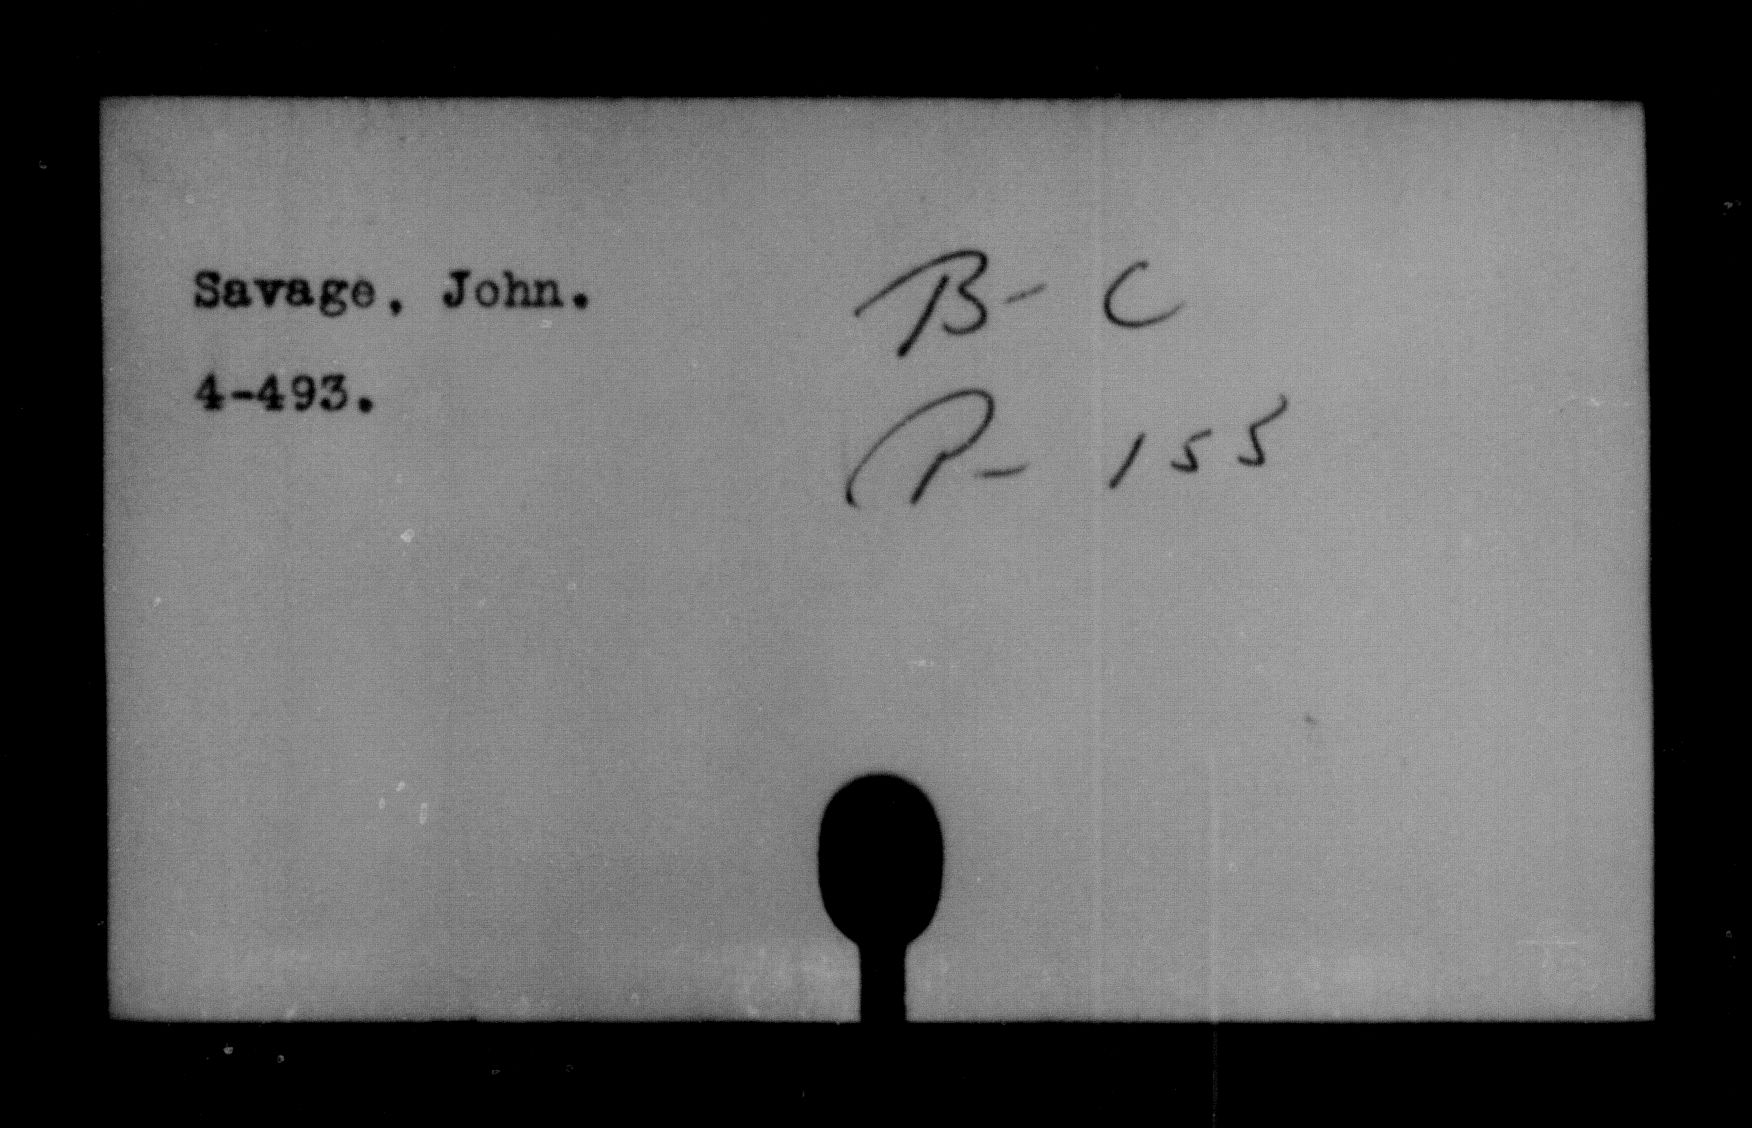 Savage, John.
4-493.
B- C
P- 155